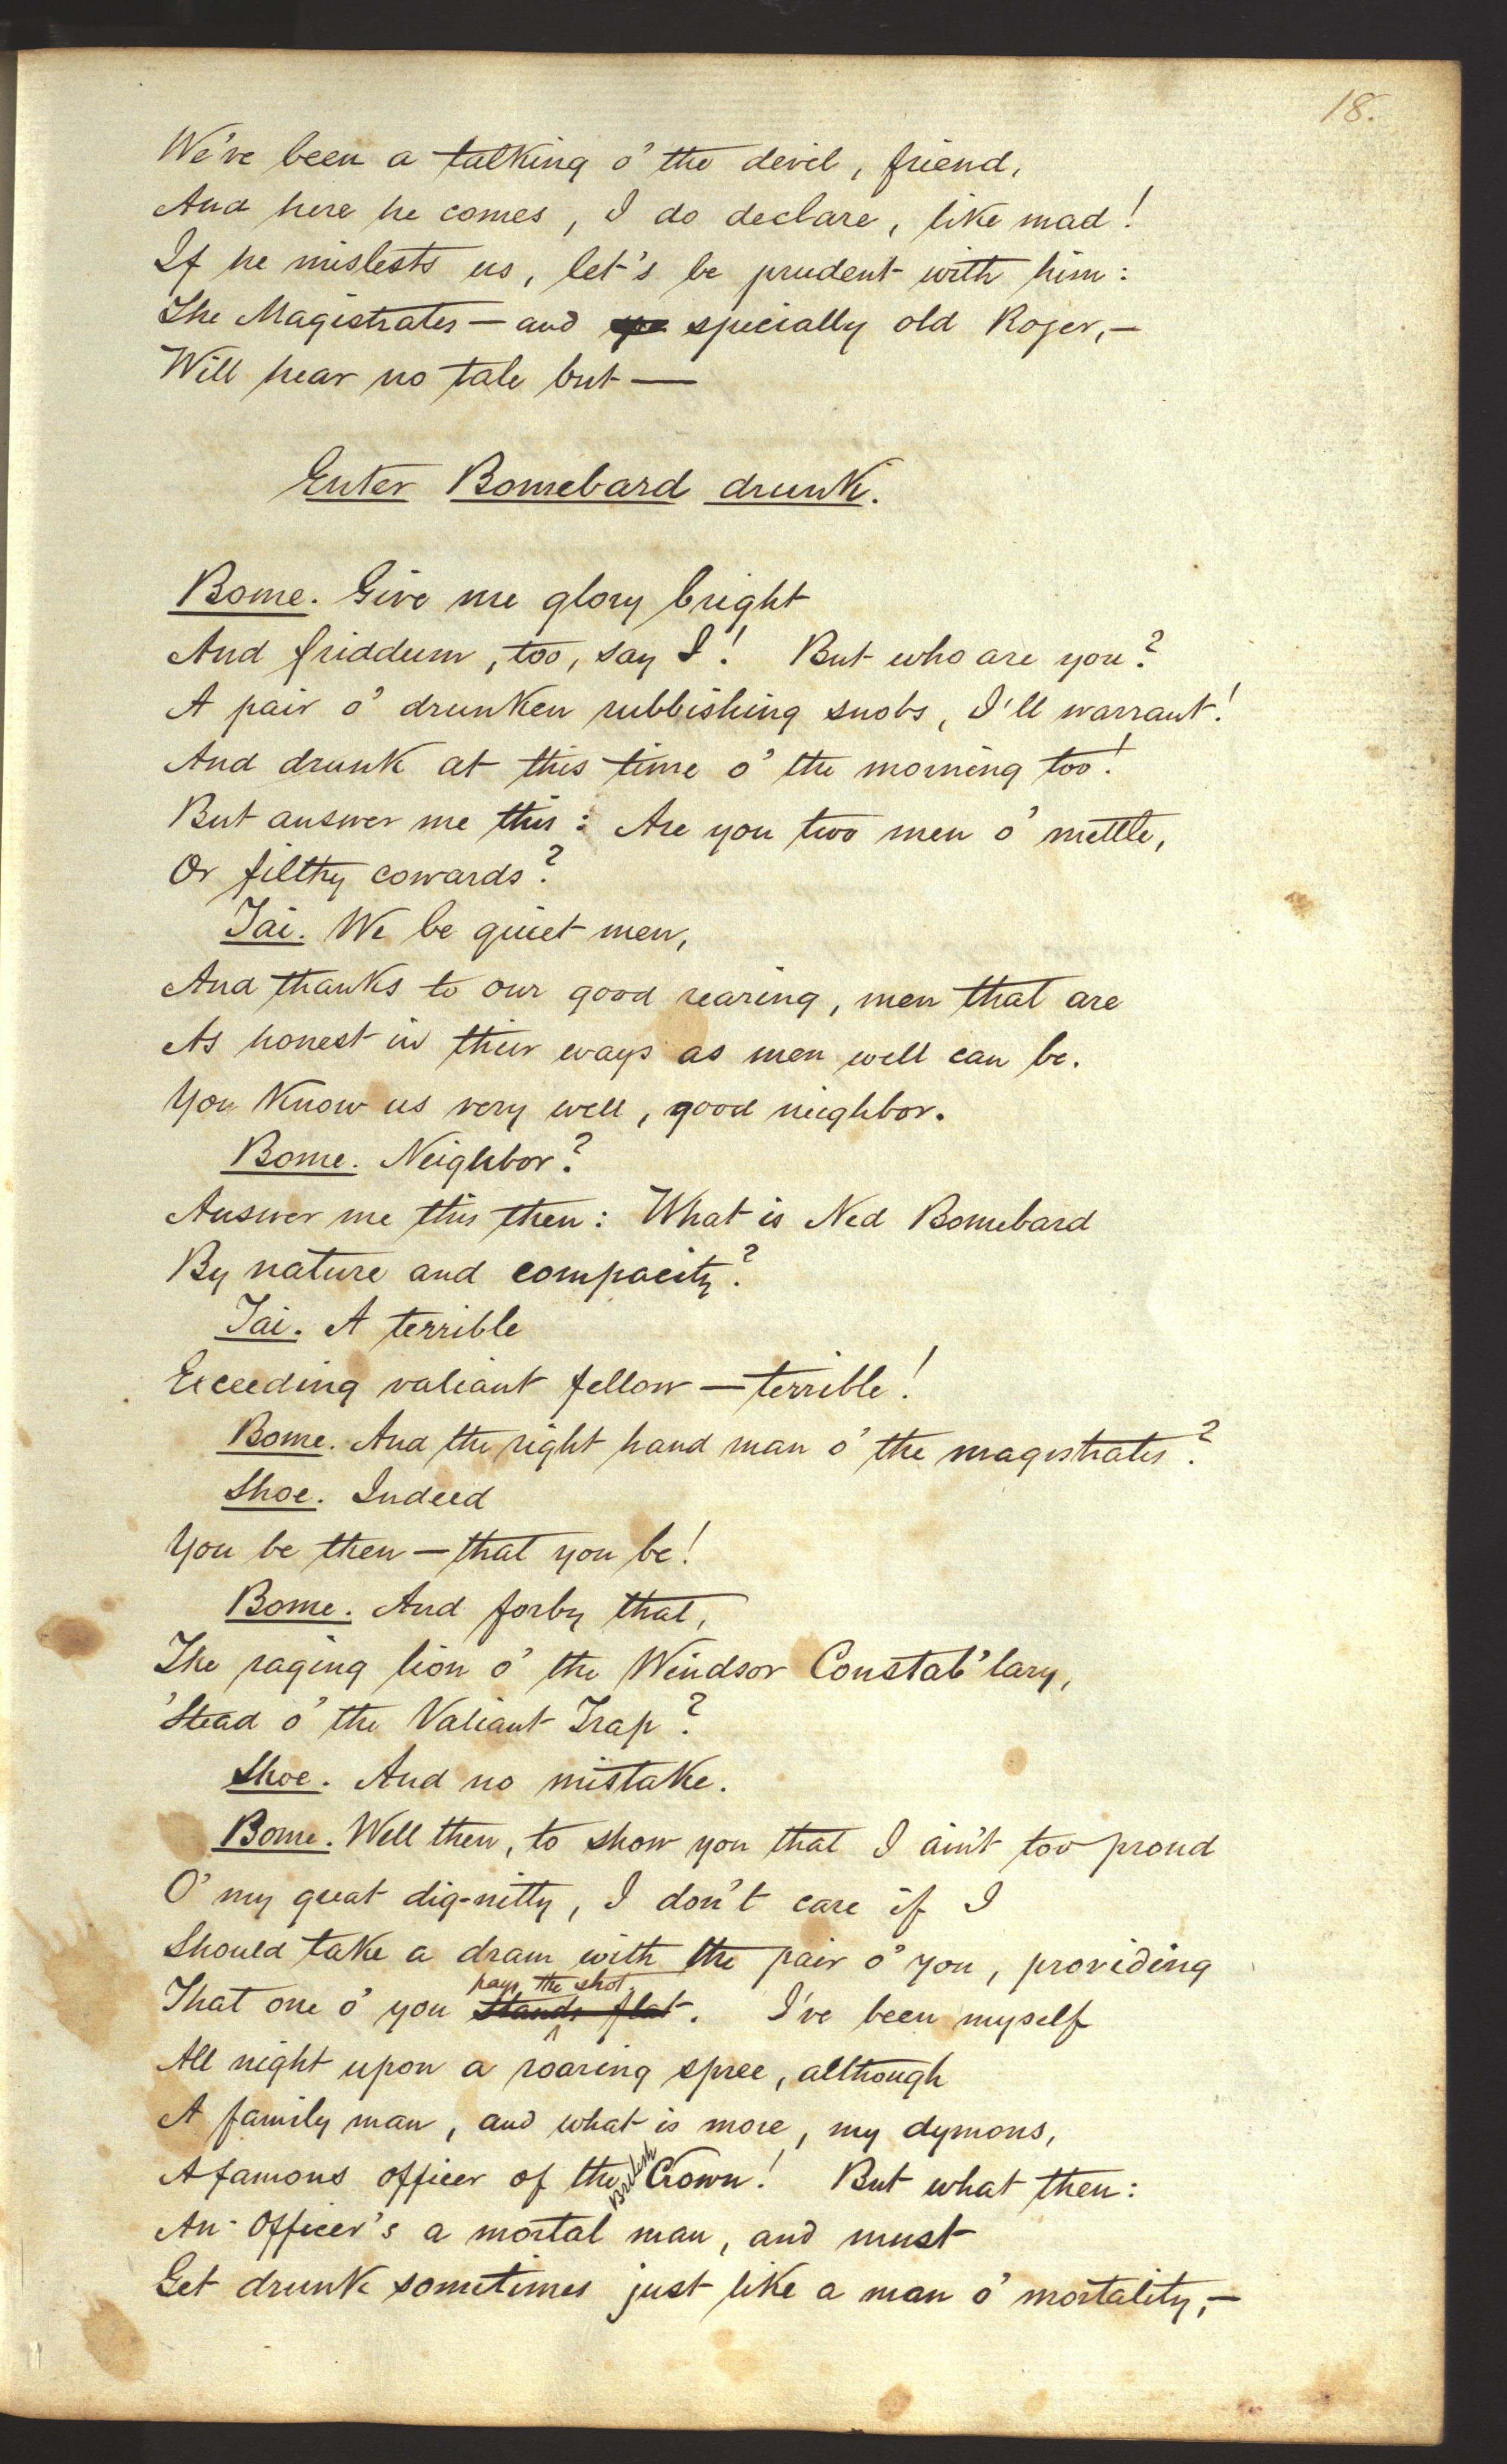 18.
We've been a talking o' the devil, friend,
And here he comes, I do declare, like mad!
If he mislests us, let's be prudent with him:
The Magistrates — and specially old Roger, —
Will hear no tale but —
Enter Bomebard drunk.
Bome. Give me glory bright
And friddum, too, say I! But who are you?
A pair o' drunken rubbishing snobs, I'll warrant!
And drunk at this time o' the morning too!
But answer me this: Are you two men o' mettle,
Or filthy cowards?
Tai. We be quiet men,
And thanks to our good rearing, men that are
As honest in their ways as men well can be.
You know us very well, good neighbor.
Bome. Neighbor?
Answer me this then: What is Ned Bomebard
By nature and compacity?
Tai. A terrible
Exceeding valiant fellow — terrible!
Bome. And the right hand man o' the magistrates?
Shoe. Indeed
You be then — that you be!
Bome. And forby that,
The raging lion o' the Windsor Constab'lary,
'Stead o' the Valiant Trap?
Shoe. And no mistake.
Bome. Well then, to show you that I ain't too proud
O' my great dig-nitty, I don't care if I
Should take a dram with the pair o' you, providing
pays the shot.
That one o' you stands flat. I've been myself
All night upon a roaring spree, although
A family man, and what is more, my dymons,
A famous officer of the British Crown! But what then:
An Officer's a mortal man, and must
Get drunk sometimes just like a man o' mortality, —